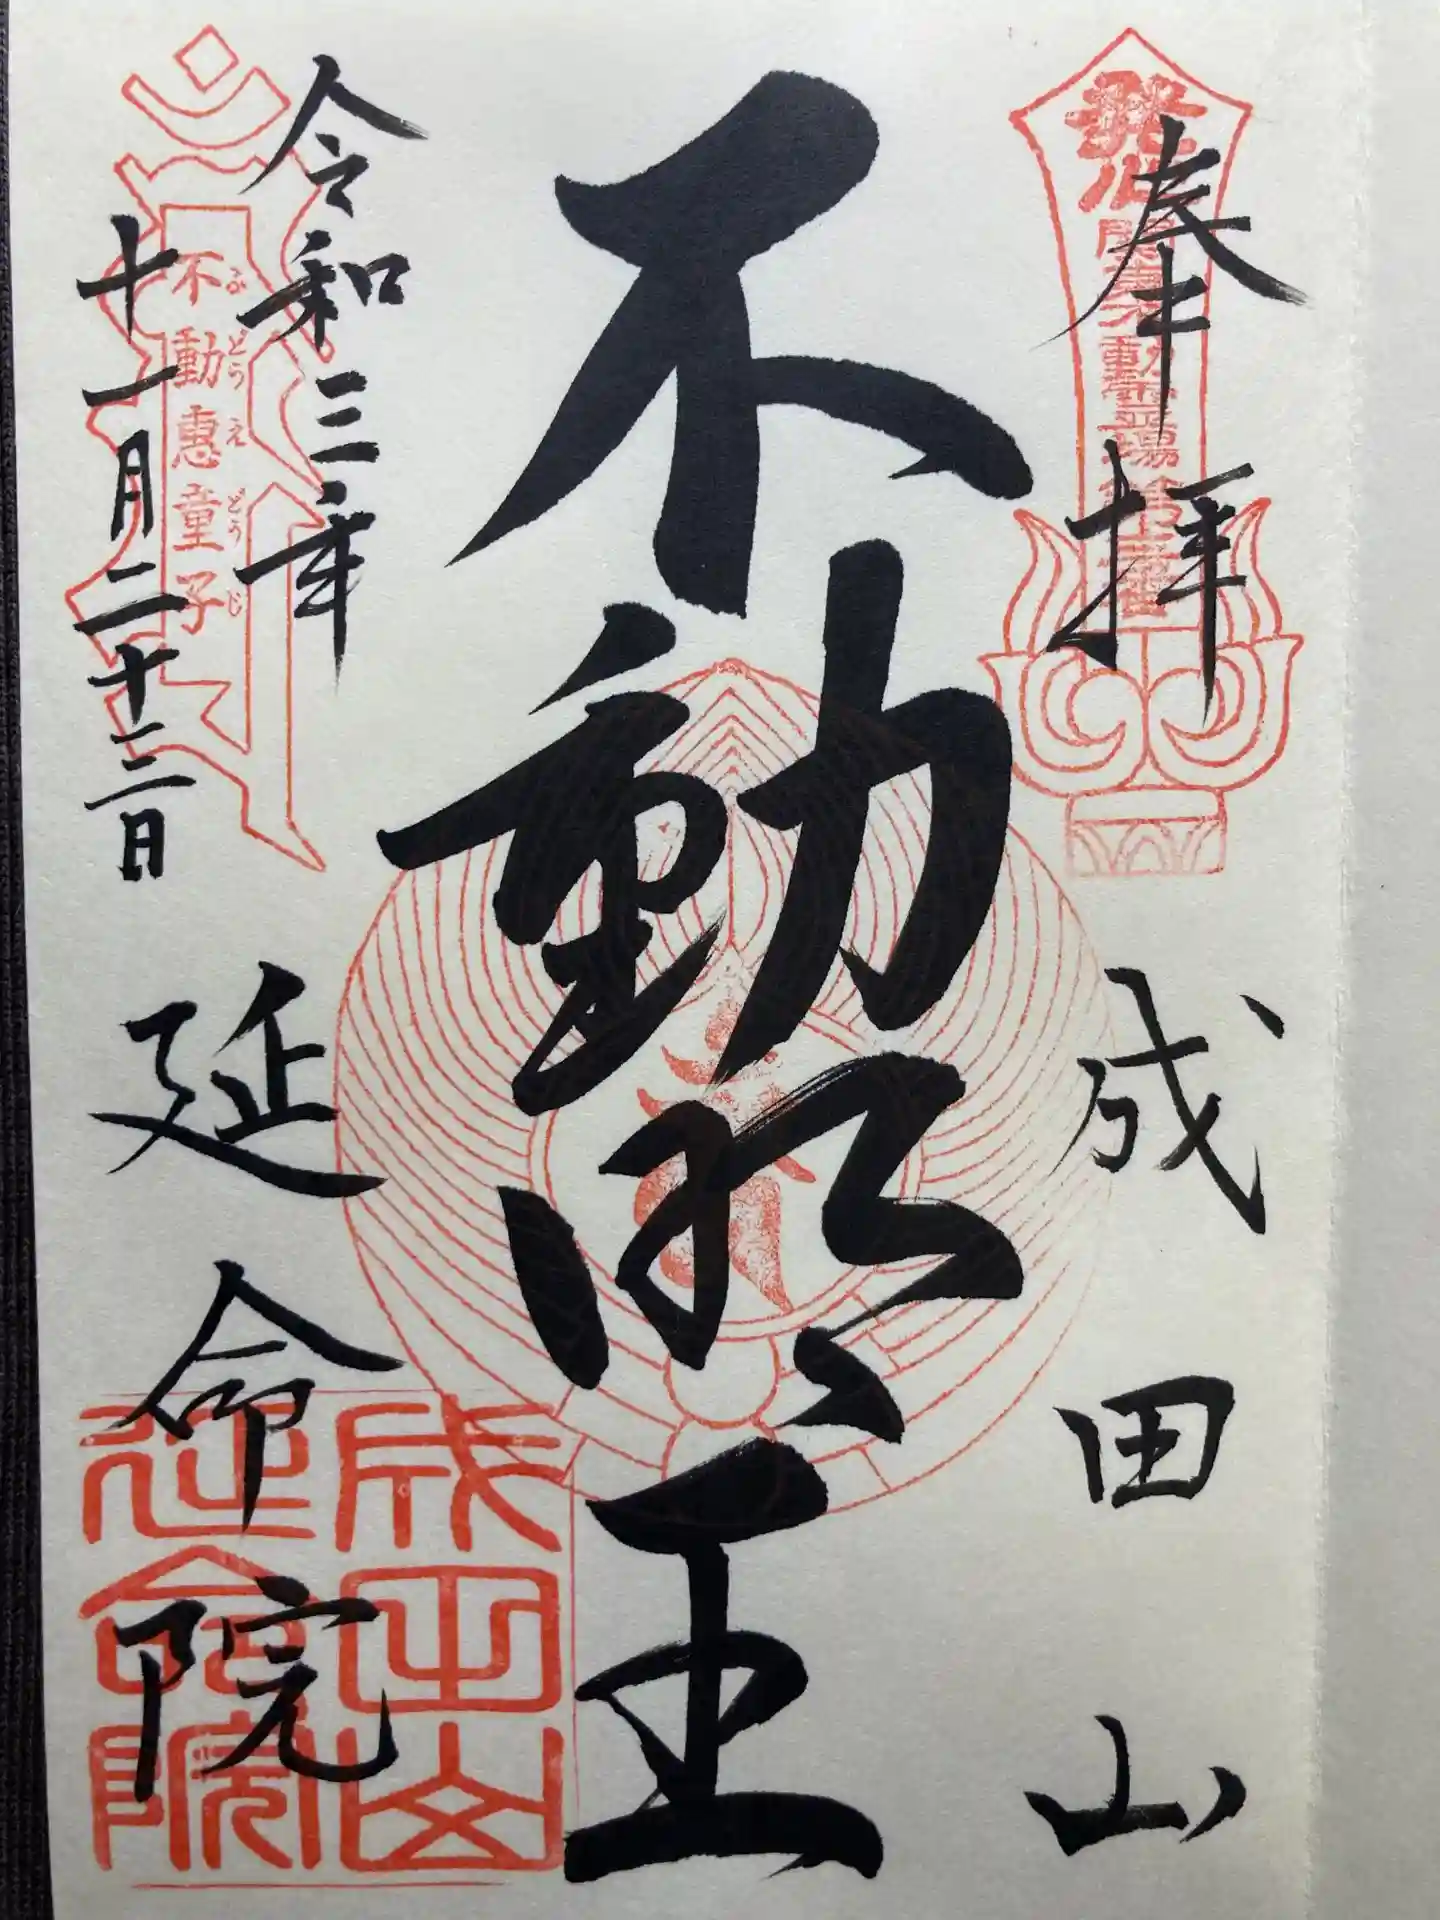 奉拝
成田山
発心
関東不動霊場
不動明王
令和三年
十一月二十三日
不動恵童子
ふどうえどうじ
延命院
成田山
延命院